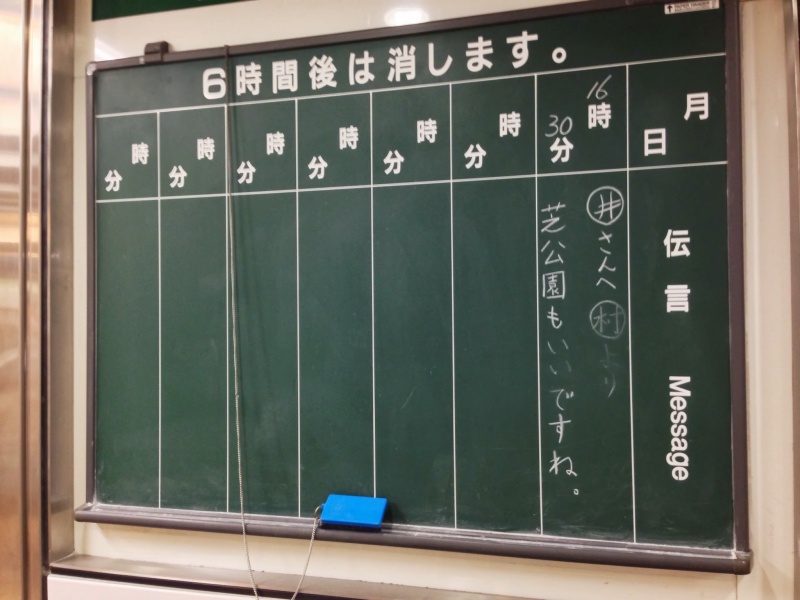 6時間後は消します。
月
日
伝言 Message
16時
30分
井さんへ 村より
芝公園もいいですね。
時
分
時
分
時
分
時
分
時
分
時
分